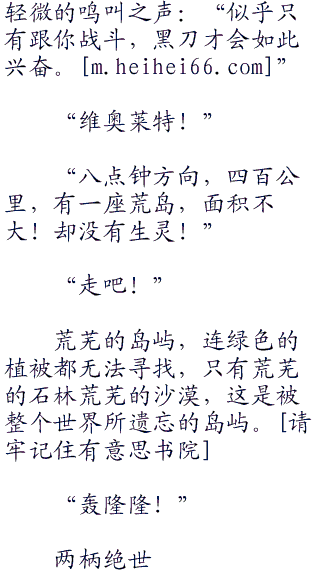 轻微的鸣叫之声：“似乎只
有跟你战斗，黑刀才会如此
兴奋。[m.heihei66.com]”
“维奥莱特！”
“八点钟方向，四百公
里，有一座荒岛，面积不
大！却没有生灵！”
“走吧！”
荒芜的岛屿，连绿色的
植被都无法寻找，只有荒芜
的石林荒芜的沙漠，这是被
整个世界所遗忘的岛屿。[请
牢记住有意思书院]
“轰隆隆！”
两柄绝世